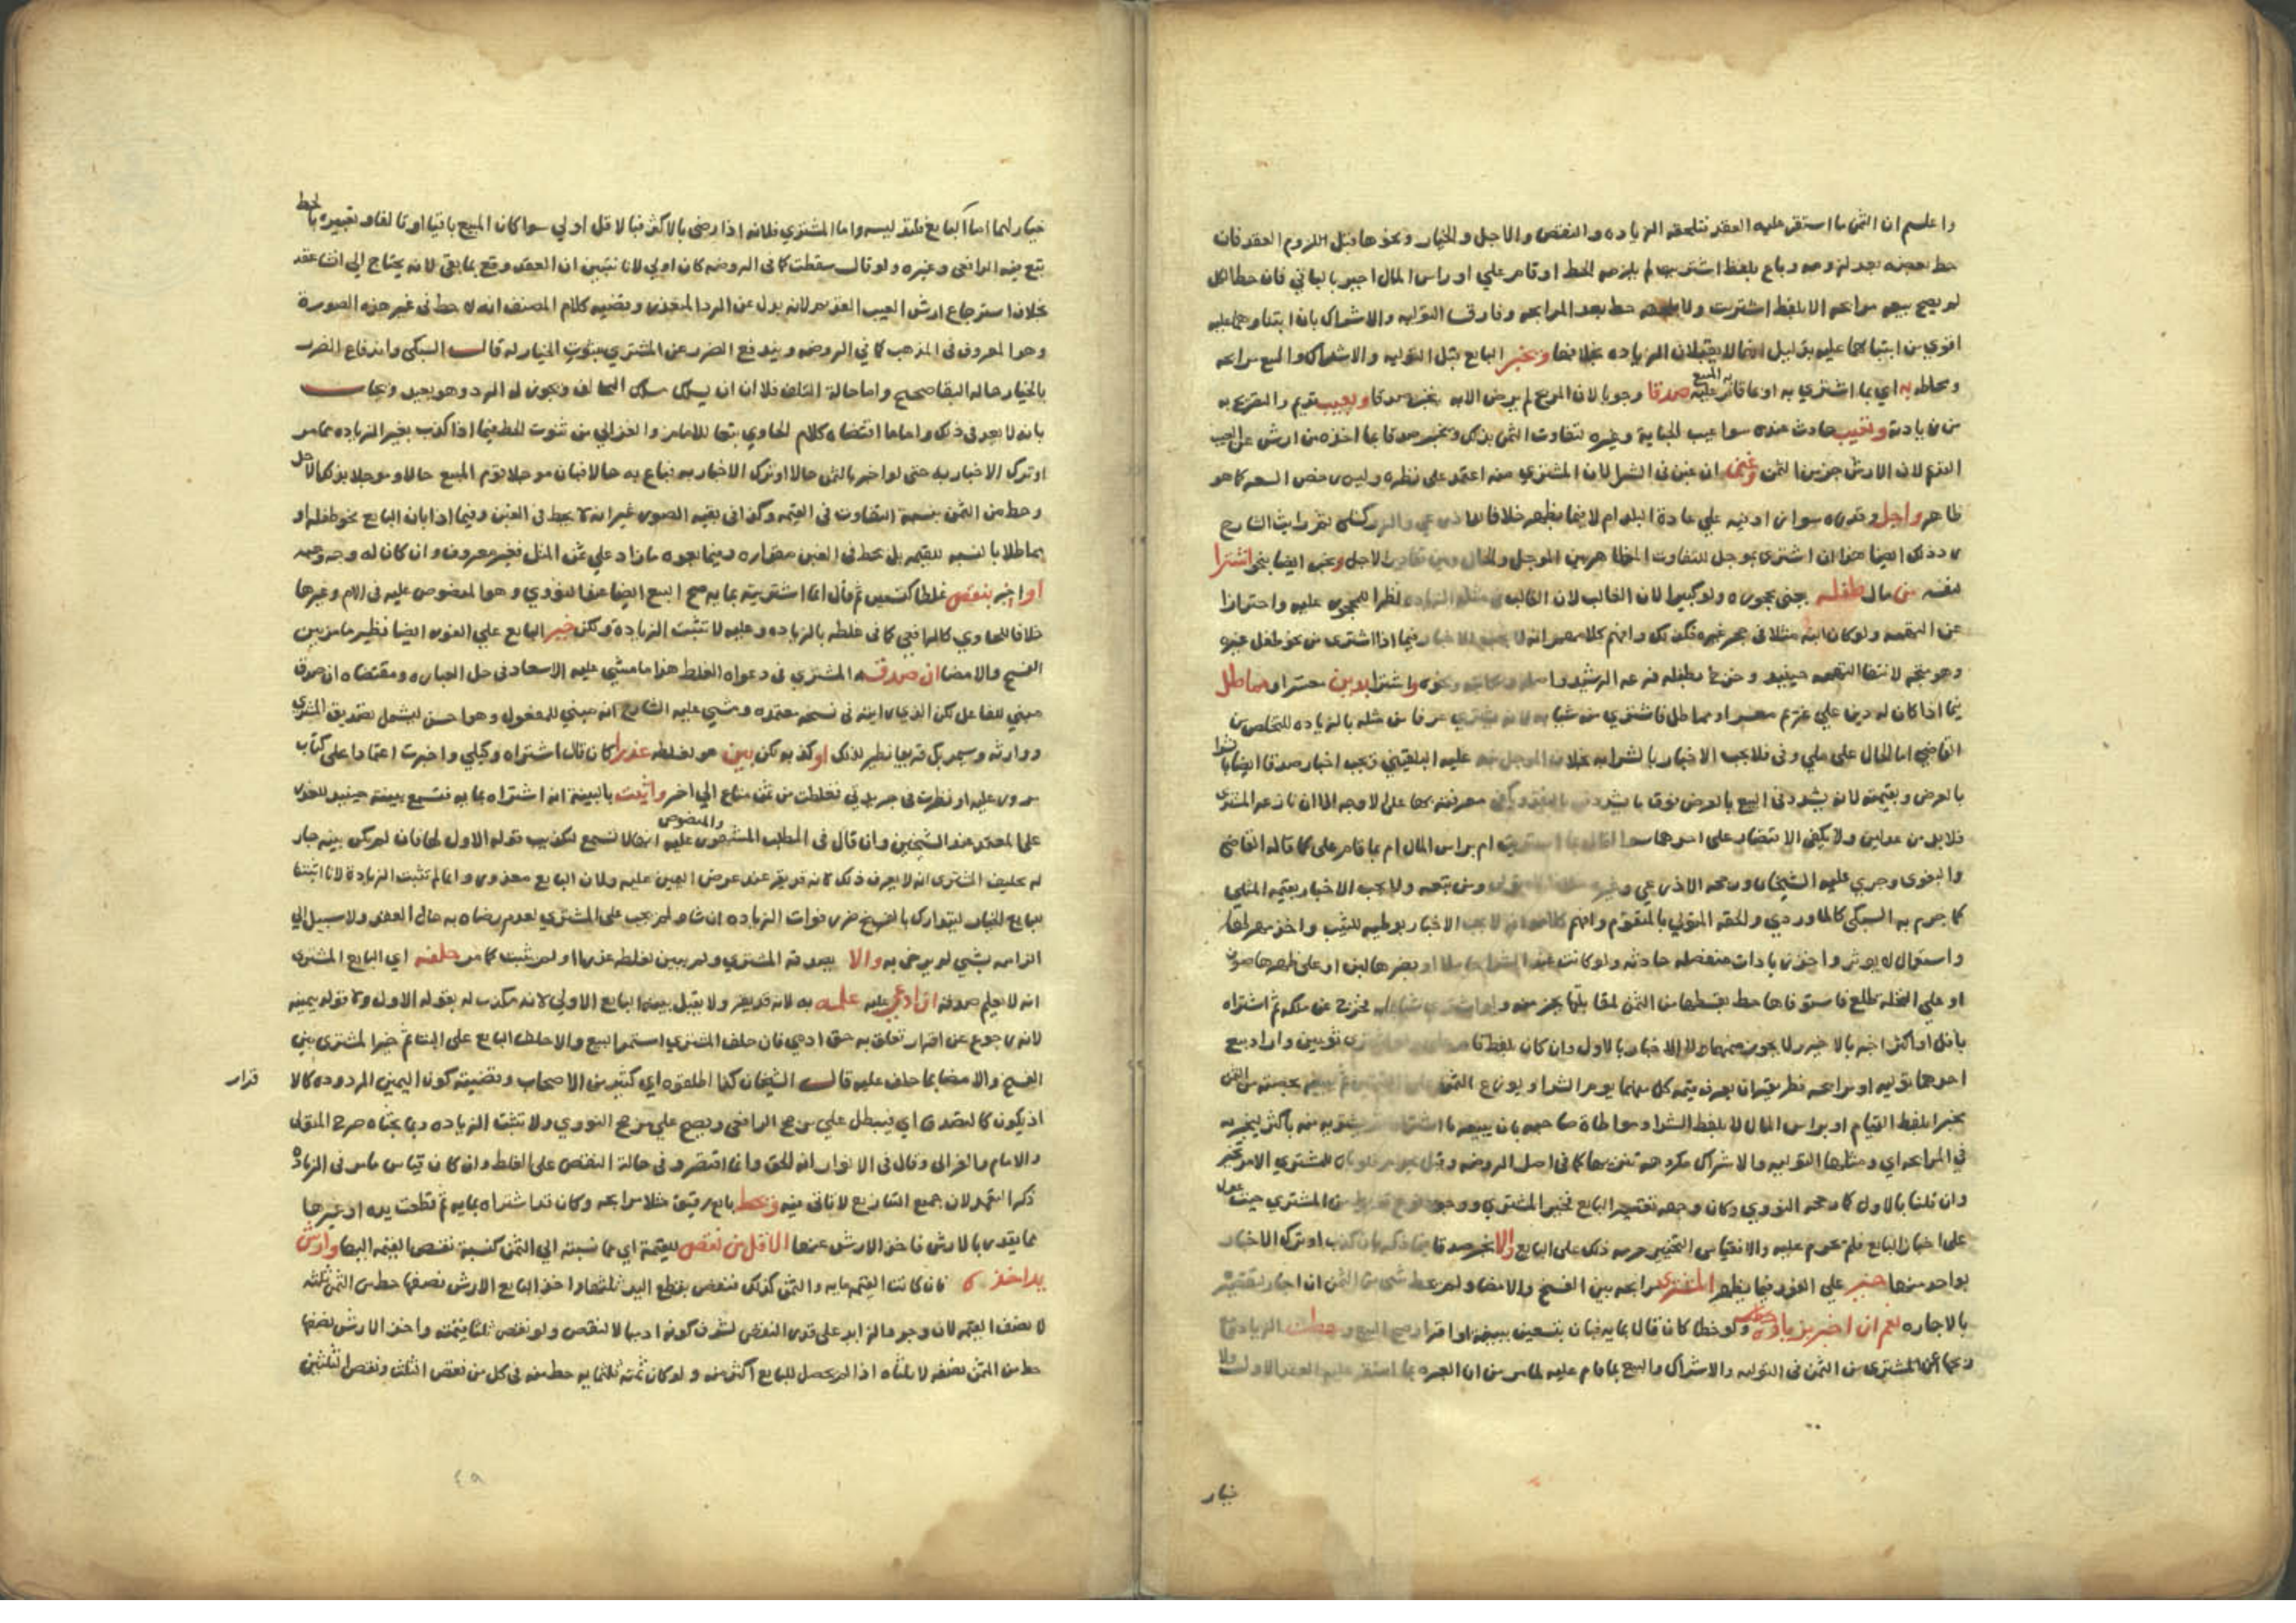 واعلم ان الثمن ما استقر عليه العقد فتلحقه الزياده والنقص والاجل والخيار ونحوها قبل اللزوم العقد فان
حط بعضه بعد لزومه وباع بلفظ اشتريت لم يلزمه الحط او قام علي او راس المال اخبر بالباقي فان حط الكل
لم يصح بيعه مرابحه الا بلفظ اشتريت ولا يلحقه حط بعد المرابحه وفارقت التوليه والاشراك بان ابتناوهما عليه
اقوي من ابتنائها عليه بدليل انهما لا يقبلان الزياده بخلافها ويخبر البايع قبل التوليه والاشراك والبيع مرابحه
ومحاطه به اي بما اشتري به او بما قام به المبيع عليه صدقا وجوبا لان المربح لم يرض الا به يخبر صدقا وبعيب قديم
وتعيب حادث عنده سوا عيب الجناية وغيره لتفاوت الثمن بذلك ويخبر صدقا بما اخذه من ارش عن العيب
القديم لان الارش جزء من الثمن وغبن ان غبن في الشرا لان المشتري منه اعتمد علي نظره وليس رخص السعر كما هو
ظاهر واجل وقدره سوا زاد فيه علي عادة البلد ام لا فيما يظهر خلافا
ايضا هذا ان اشتري بموجل للتفاوت الظاهر بين الموجل والحال الاجل ويخبر ايضا بنحو اشترا
لنفسه من مال طفله يعني محجوره ولو كبيرا لان الغالب لان الغالب في مثله الزياده نظرا للمحجور عليه واحترازا
عن التهمه ولو كان ابنه مثلا في حجر غيره فكذلك وافهم كلامه انه لا يجب الاخبار فيما اذا اشتري من نحو طفل غيره
وهو متجه لانتفا التهمه حينيذ وخرج بطفله فرعه الرشيد واشترا بدين معسر او مماطل
فيما اذا كان له دين علي غريم معسر او مماطل فاشتري منه شيا به لانه يشتري عرفا من مثله بالزياده للتخلص من
التقاضي اما الحال علي ملي وفي فلا يجب الاخبار بالشرا به بخلاف الموجل عليه البلقيني ويجب اخباره صدقا ايضا بالشرا
بالعرض وبقيمته لانه يشدد في البيع بالعرض فوق ما يشدد في البيع بالنقد
فلا بد من عدلين ولا يكفي الاقتصار علي احدهما سوا اقال بما اشتريت ام براس المال ام بما قام علي كما قاله القاضي
والبغوي وجري عليه الشيخان ورجحه الاذرعي ومن تبعه ولا يجب الاخبار بقيمه المثلي
كما جزم به السبكي كالماوردي والحقه المتولي بالمتقوم وافهم كلامه انه لا يجب الاخبار بوطيه للثيب واخذ مهرها
واستعمال لم يوثر واخذ زيادات منفصله حادثه ولو كانت عند الشرا حاملا او بضرعها لبن او علي ظهرها صوف
او علي النخله طلع فاستوفاها حط بقسطها من الثمن لمقابلتها بجزء منه ولو اشتري شيا ثم خرج عن ملكه ثم اشتراه
باقل او اكثر اخبر بالاخير ولا يجوز ضمهما ولا الاخبار بالاول وان كان بلفظ قام علي ثوبين واراد بيع
احدهما توليه او مرابحه فطريقه ان يعرف قيمه كل منهما يوم الشرا ويوزع الثمن علي القيمتين ثم يبيعه بحصته من الثمن
مخبرا بلفظ القيام او براس المال لا بلفظ الشرا ومواطاة صاحبه بان يبيعه ما اشتراه ثم يشتريه منه باكثر ليخبر به
في المرابحه اي ومثلها التوليه والاشراك مكروهه تنزيها كما في اصل الروضه وقيل يحرم فلو بان للمشتري الامر تخير
وان قلنا بالاول كما رجحه النووي وكان وجهه تقصير البايع فخير المشتري من المشتري حيث عول
علي اخبار البايع فلم يحرم عليه والا فقياس التخيير حرمه ذلك علي البايع والا يخبر صدقا فيما ذكر بان كذب او ترك الاخبار
بواحد منها خير علي الفور فيما يظهر المشتري مرابحه بين الفسخ والامضا ولم يحط شي من الثمن ان اجاز لتقصيره
بالاجازه نعم ان اخبر بزياده ولو خطا كان قال بمايه فبان بتسعين ببينه او اقرار صح البيع وحطت الزيادة
وربحها عن المشتري من الثمن في التوليه والاشراك والبيع بما قام عليه لما مر من ان العبره بما استقر عليه العقد الاول ولا
خيار
خيار لهما اما البايع فلتدليسه واما المشتري فلانه اذا رضي بالاكثر فبالاقل اولي سوا كان المبيع باقيا او تالفا وتعبيره بالحط
تبع فيه الرافعي وغيره ولو قال سقطت كما في الروضه كان اولي لانا نتبين ان العقد وقع بما بقي لانه يحتاج الي انشا عقد
بخلاف استرجاع ارش العيب القديم لانه بدل عن الرد المتعذر وقضيه كلام المصنف انه لا حط في غير هذه الصورة
وهو المعروف في المذهب كما في الروضه ويندفع الضرر عن المشتري بثبوت الخيار له قال السبكي واندفاع الضرر
بالخيار حاله البقا صحيح واما حالة التلف فلا ان يسلك مسلك التحالف ويجوز له الرد وهو بعيد ويجاب
بانه لا بعد في ذلك واما ما اقتضاه كلام الحاوي تبعا للامام والغزالي من ثبوت الحط فيما اذا كذب بغير الزياده مما مر
او ترك الاخبار به حتى لو اخبر بالثمن حالا او ترك الاخبار به فباع به حالا فبان موجلا يقوم المبيع حالا وموجلا بذلك الاجل
وحط من الثمن بنسبة التفاوت في القيمه وكذا في بقيه الصور غير انه لا يحط في الغبن وفيما اذا بان البايع نحو طفله او
مماطلا بالنسبه للقيمه بل يحط في الغبن مقداره وفيما بعده ما زاد علي ثمن المثل فغير معروف وان كان له وجه وجيه
او اخبر بنقص غلطا كتسعين ثم قال انما اشتريته بمايه صح البيع ايضا عند النووي وهو المنصوص عليه في الام وغيرها
خلافا للحاوي كالرافعي كما في غلطه بالزياده وعليه لا تثبت الزيادة ولكن خير البايع علي الفور ايضا نظير ما مر بين
الفسخ والامضا ان صدقه المشتري في دعواه الغلط هذا ما مشي عليه الاسعاد في حل العباره ومقتضاه ان صدق
مبني للفاعل لكن الذي رايته في نسخه معتمده ومشي عليه الشارح انه مبني للمفعول وهو احسن ليشمل تصديق المشتري
ووارثه وسيمر بك قريبا نظير لذلك او كذبه ولكن بين هو لغلطه عذرا كان قال اشتراه وكيلي واخبرت اعتمادا علي كتاب
مزور عليه او نظرت في جريدتي فغلطت من ثمن متاع الي اخر واثبت بالبينة انه اشتراه بمايه فتسمع بينته حينيذ للعذر
علي المعتمد عند الشيخين وان قال في المطلب المشهور والمنصوص عليه انها لا تسمع لتكذيب قوله الاول لها فان لم يكن بينه جاز
له تحليف المشتري انه لا يعرف ذلك لانه قد يقر عند عرض اليمين عليه ولان البايع معذور وانما لم تثبت الزيادة لانا اثبتنا
للبايع الخيار ليتدارك بالفسخ ضرر فوات الزياده ان شا ولم يجب علي المشتري لعدم رضاه به حال العقد ولا سبيل الي
الزامه بشي لم يرض به والا يصدقه المشتري ولم يبين لغلطه عذرا او لم يثبت كما مر حلفه اي البايع المشتري
انه لا يعلم صدقه ان ادعي عليه علمه به لانه قد يقر ولا يقبل بينه البايع الاولي لانه مكذب له بقوله الاول ولا قوله بيمينه
لانه رجوع عن اقرار تعلق به حق ادمي فان حلف المشتري استمر البيع والا حلف البايع علي البت ثم خير المشتري بين
الفسخ والامضا بما حلف عليه قال الشيخان كذا اطلقوه اي كثير من الاصحاب وقضيته كون اليمين المردوده كالا
قرار
اذ يكون كالتصديق اي فيبطل علي مرجح الرافعي ويصح علي مرجح النووي ولا تثبت الزياده وبما بحثاه صرح المتولي
والامام والغزالي وقال في الانوار انه الحق وانما اقتصروا في حالة النقص علي الغلط وان كان قياس ما مر في الزيادة
ذكر التعمد لان جميع التفاريع لا تاتي فيه ويحط بايع رقيق مثلا مرابحه وكان قد اشتراه بمايه ثم قطعت يده او غيرها
مما يقدر بالارش فاخذ الارش عنها الاقل من نقص للقيمة اي ما نسبته الي الثمن كنسبة نقص القيمه اليها وارش
يد اخذه فان كانت القيمه مايه والثمن كذلك فنقص بقطع اليد ثلثها واخذ البايع الارش نصفها حط من الثمن ثلثه
لا نصف القيمه لان وجوب الزايد علي قدر النقص لشرف كونه ادميا لا لنقص ولو نقص ثلثا قيمته واخذ الارش نصفها
حط من الثمن نصفه لا ثلثاه اذ لم يحصل للبايع اكثر منه ولو كان ثمنه ثلثمايه حط منه في كل من نقص الثلث ونقص الثلثين
٤٩